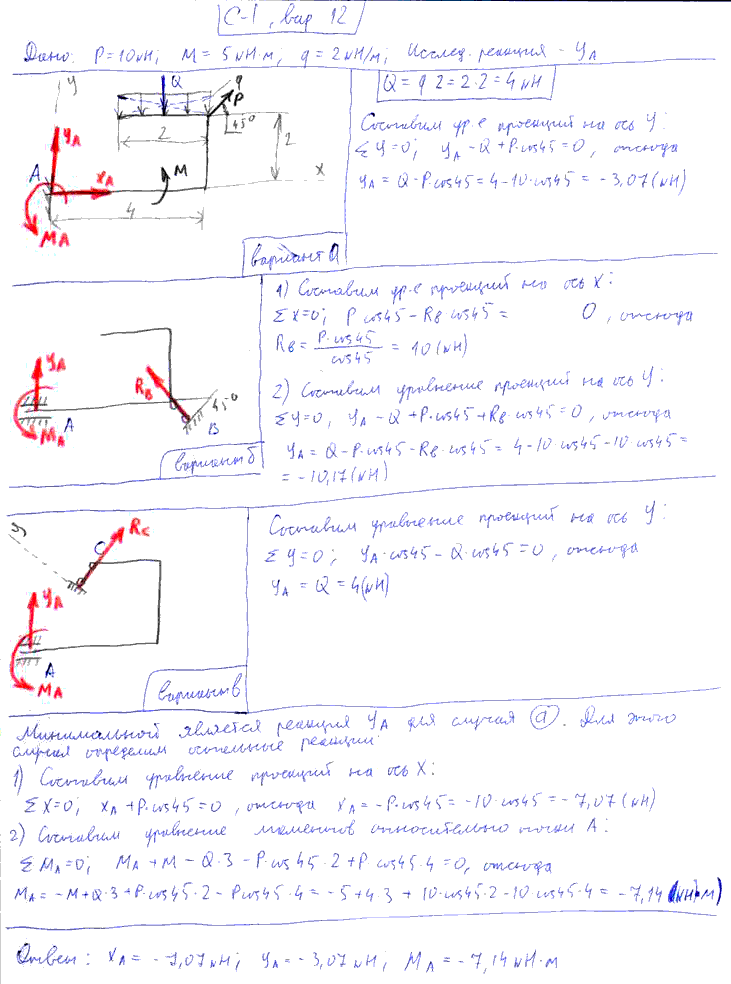 С-1, вар 12
Дано: P = 10 кН; M = 5 кН·м; q = 2 кН/м; Исслед. реакция - YA
y
Q
q
P
45°
2
2
Q = q 2 = 2·2 = 4 кН
Составим ур.е проекций на ось Y:
Σ Y=0; YA - Q + P·cos45 = 0, отсюда
YA = Q - P·cos45 = 4 - 10·cos45 = -3,07 (кН)
YA
A
XA
M
X
4
MA
вариант а
1) Составим ур.е проекций на ось X:
Σ X=0; P cos45 - RB cos45 = 0, отсюда
RB = P·cos45 / cos45 = 10 (кН)
2) Составим уравнение проекций на ось Y:
Σ Y=0, YA - Q + P·cos45 + RB·cos45 = 0, отсюда
YA = Q - P·cos45 - RB·cos45 = 4 - 10·cos45 - 10·cos45 =
= -10,17 (кН)
YA
RB
45°
A
B
MA
вариант б
Составим уравнение проекций на ось Y:
Σ Y=0; YA·cos45 - Q·cos45 = 0, отсюда
YA = Q = 4 (кН)
y
RC
C
YA
A
MA
вариант в
Минимальной является реакция YA для случая а. Для этого
случая определим остальные реакции:
1) Составим уравнение проекций на ось X:
Σ X=0; XA + P·cos45 = 0, отсюда XA = -P·cos45 = -10·cos45 = -7,07 (кН)
2) Составим уравнение моментов относительно точки A:
Σ MA=0; MA + M - Q·3 - P·cos45·2 + P·cos45·4 = 0, отсюда
MA = -M + Q·3 + P·cos45·2 - P cos45·4 = -5 + 4·3 + 10·cos45·2 - 10 cos45·4 = -7,14 (кН·м)
Ответ: XA = -7,07 кН; YA = -3,07 кН; MA = -7,14 кН·м